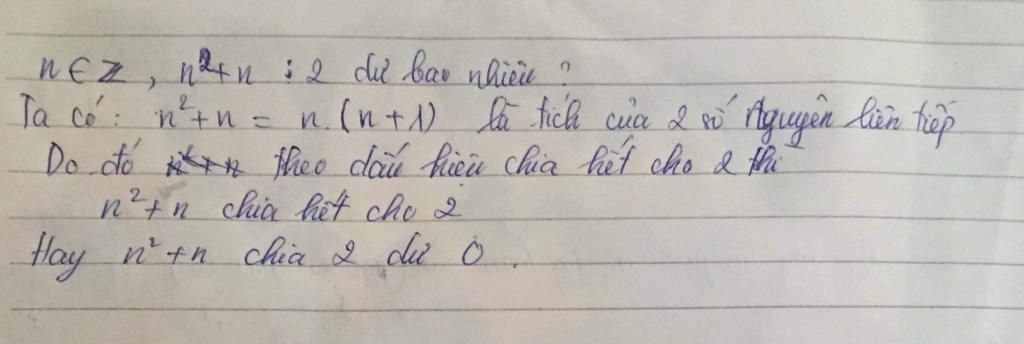 n ∈ ℤ, n²+n : 2 dư bao nhiêu ?
Ta có: n²+n = n.(n+1) là tích của 2 số Nguyên liên tiếp
Do đó theo dấu hiệu chia hết cho 2 thì
n²+n chia hết cho 2
Hay n²+n chia 2 dư 0.